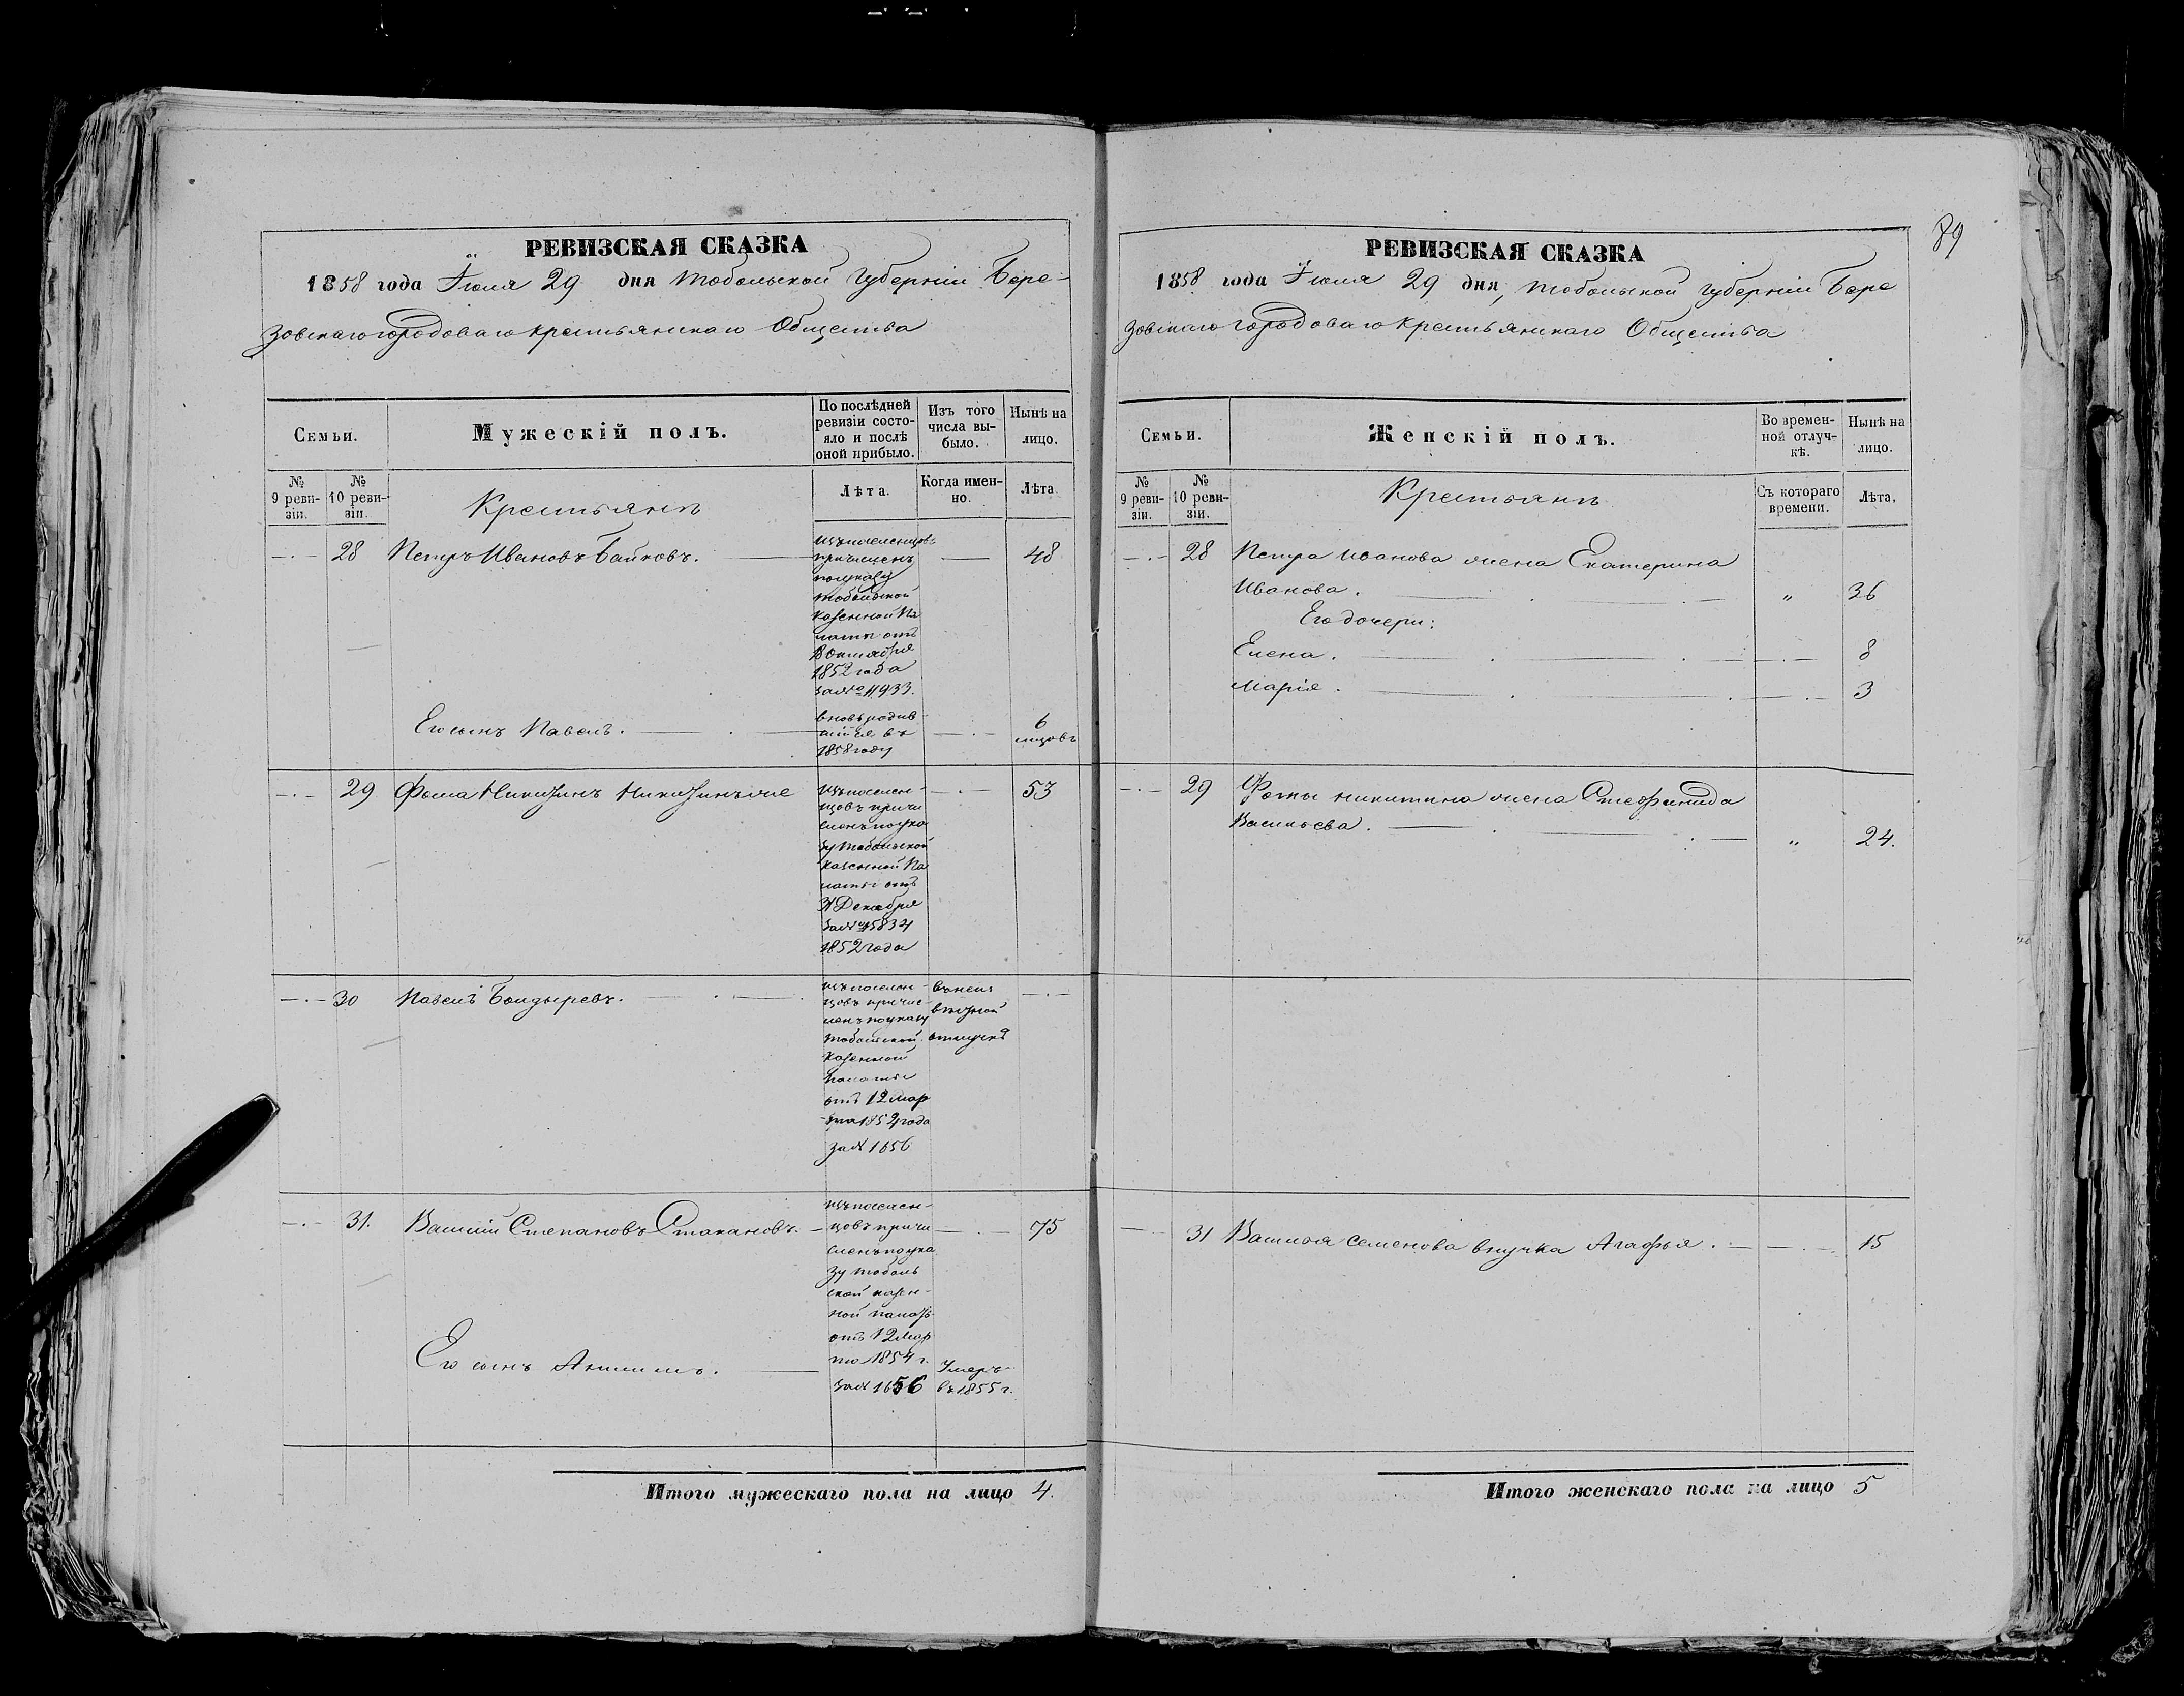 89
РЕВИЗСКАЯ СКАЗКА
1858 года Іюля 29 дня Тобольской Губерніи Бере-
зовскаго городоваго крестьянскаго Общества
Семьи.
Мужескій полъ.
По послѣдней
ревизіи состо-
яло и послѣ
оной прибыло.
Изъ того
числа вы-
было.
Нынѣ на
лицо.
№
9 реви-
зіи.
№
10 реви-
зіи.
Крестьянъ
Лѣта.
Когда имен-
но.
Лѣта.
28 Петръ Ивановъ Байковъ. 48
изъ поселенцовъ
причисленъ
по указу
Тобольской
Казенной Па
латы отъ
Октября
1852 года
за №
Его сынъ Павелъ.
вновь родив-
шійся въ
1858 году
6
29 Фома Никитинъ 53
изъ поселен-
цовъ причи
сленъ по ука
зу Тобольской
Казенной Па
латы отъ
31 Декабря
за № 15834
1852 года
30 Павелъ Болдыревъ.
изъ поселен-
цовъ причис-
ленъ по указу
Тобольской
Казенной
Палаты
отъ 12 Мар
та 1854 года
за № 1656
отлучкѣ
31. Василій Степановъ Стакановъ. 75
изъ поселен-
цовъ причи
сленъ по ука
зу Тоболь
ской казен-
ной палаты
отъ 12 Мар
та 1854 г.
за № 1656
Его сынъ
Умеръ
въ 1855 г.
Итого мужескаго пола на лицо 4.
РЕВИЗСКАЯ СКАЗКА
1858 года Іюля 29 дня, Тобольской Губерніи Бере
зовскаго городоваго крестьянскаго Общества
Семьи.
Женскій полъ.
Во времен-
ной отлуч-
кѣ.
Нынѣ на
лицо.
№
9 реви-
зіи.
№
10 реви-
зіи.
Крестьянъ
Съ котораго
времени.
Лѣта.
28 Петра Иванова жена Екатерина
Иванова. „ 36
Его дочери:
Елена. 8
Марія. 3
29 Фомы Никитина жена Стефанида
Васильева. „ 24.
31 Василья Семенова внучка Агафья. 15
Итого женскаго пола на лицо 5